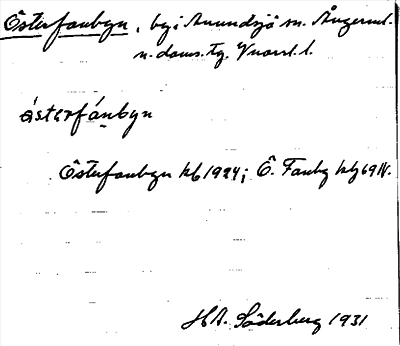 Österfanbyn, by i Anundsjö sn. Ångerml.
n. doms. tg. V norrl. l.
ȯstɛrfánbyn
Österfanbyn kb 1924; Ö. Fanby kbg 69 IV.
H A. Söderberg 1931